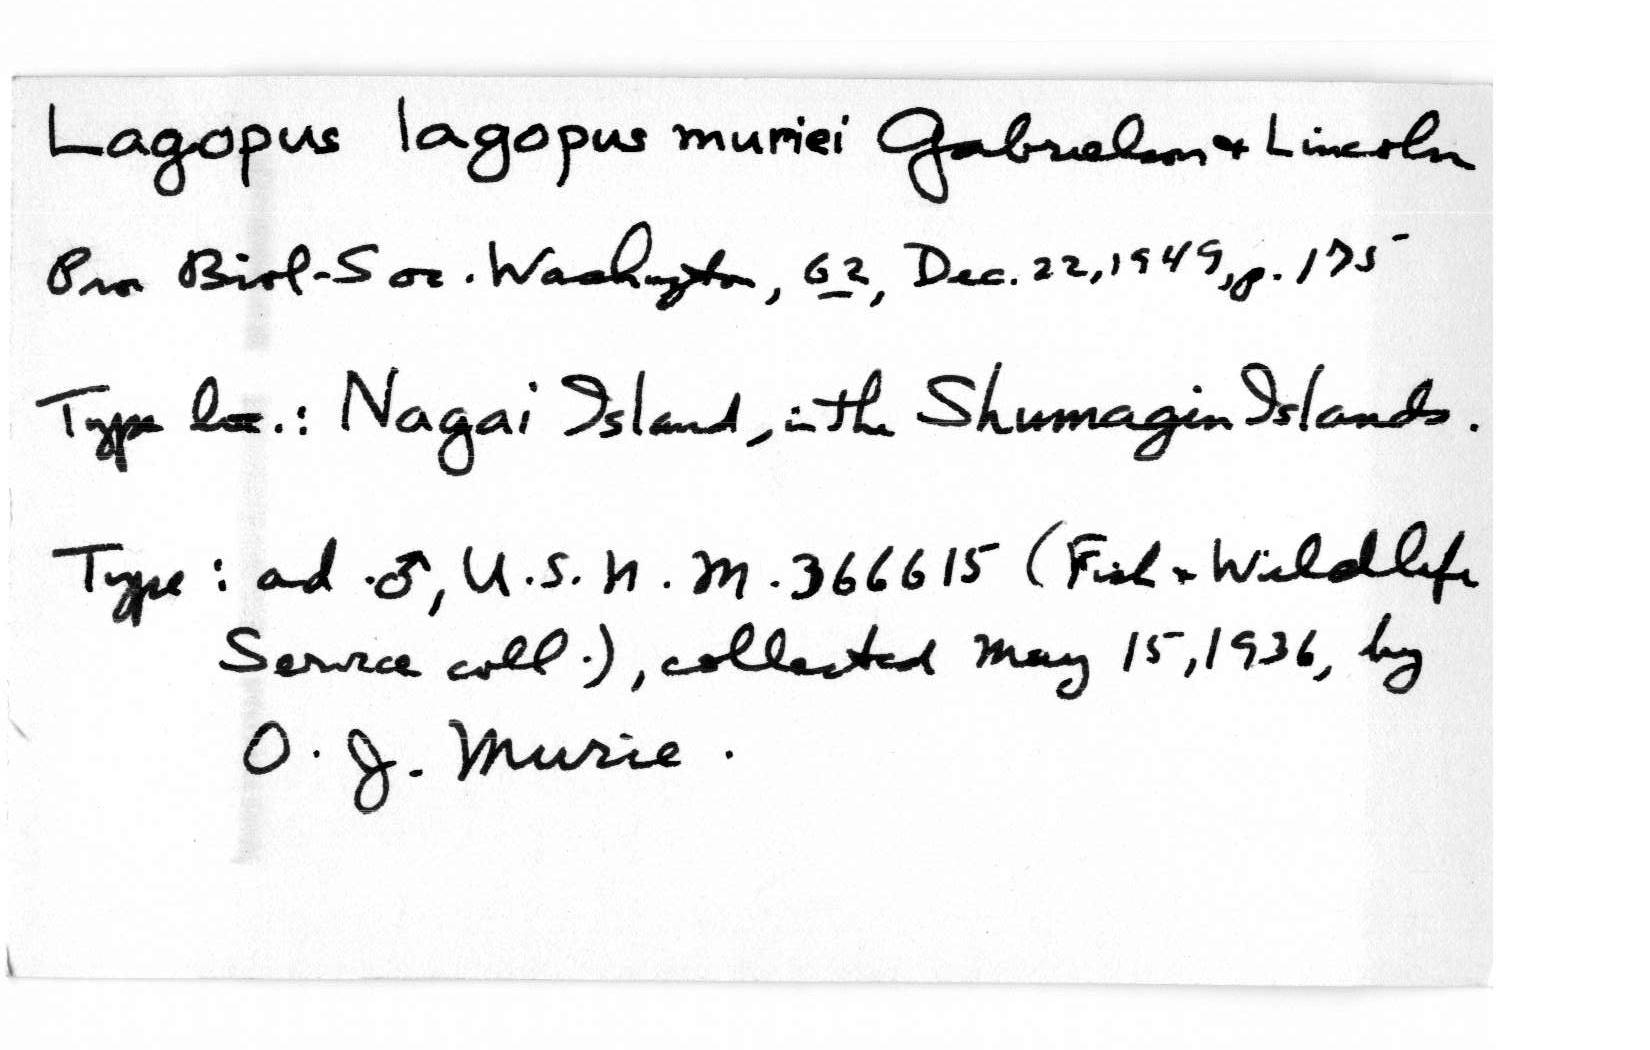 Lagopus lagopus muriei Gabrielson & Lincoln
Proc Biol. Soc. Washington, 62, Dec. 22, 1949, p. 175
Type loc.: Nagai Island, in the Shumagin Islands.
Type: ad. ♂, U.S.N.M. 366615 (Fish & Wildlife
Service coll.), collected May 15, 1936, by
O. J. Murie.